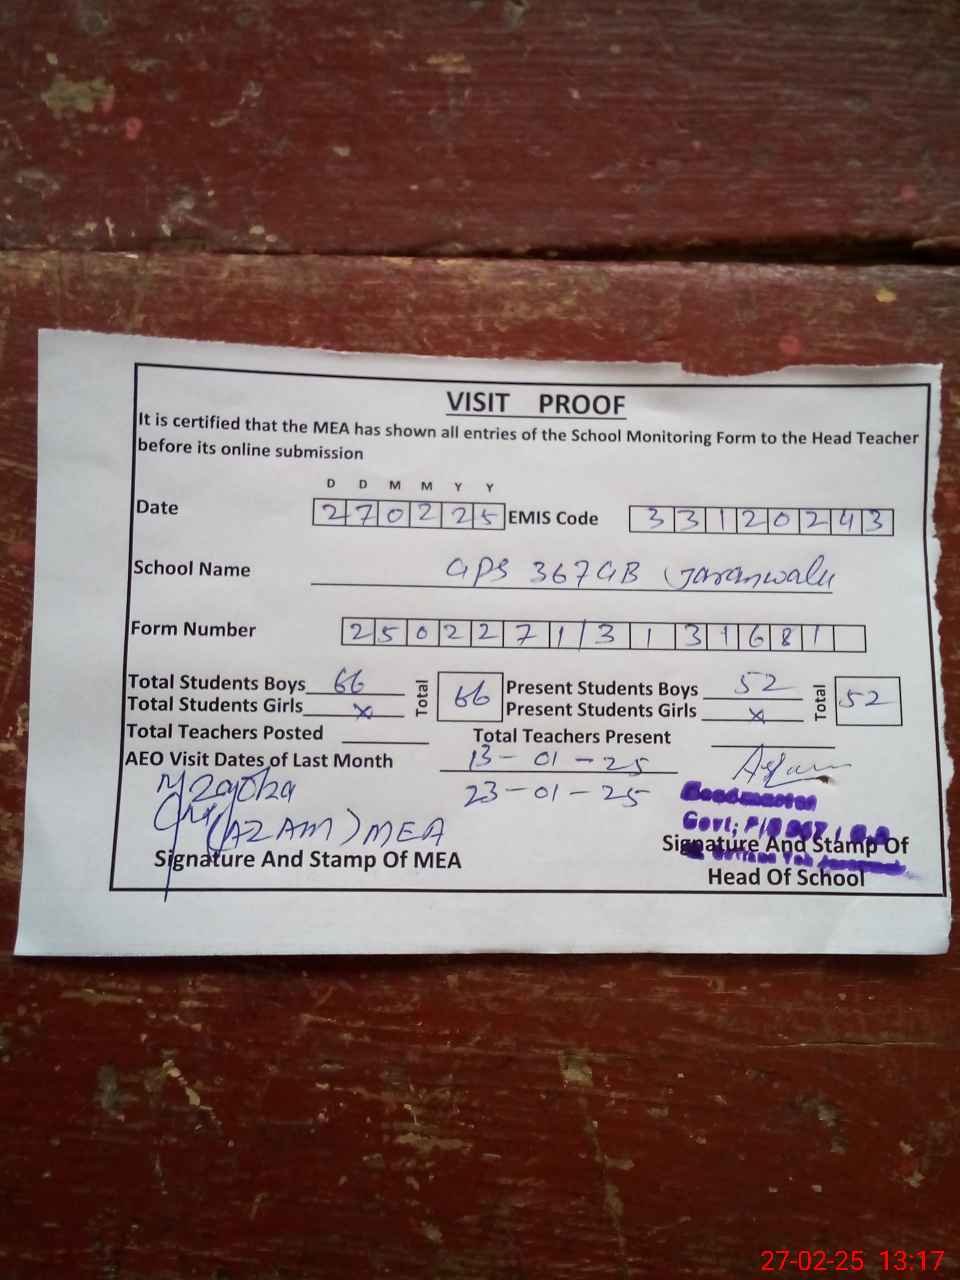 VISIT PROOF
It is certified that the MEA has shown all entries of the School Monitoring Form to the Head Teacher
before its online submission
D D M M Y Y
Date 270225 EMIS Code 33120243
School Name GPS 367GB Jaranwala
Form Number 25022713131681
Total Students Boys 66 Total 66 Present Students Boys 52 Total 52
Total Students Girls x Present Students Girls x
Total Teachers Posted Total Teachers Present
AEO Visit Dates of Last Month 13-01-25
23-01-25
(AZAM) MEA
Headmaster
Govt;
Signature And Stamp Of MEA Signature And Stamp Of
Head Of School
27-02-25 13:17